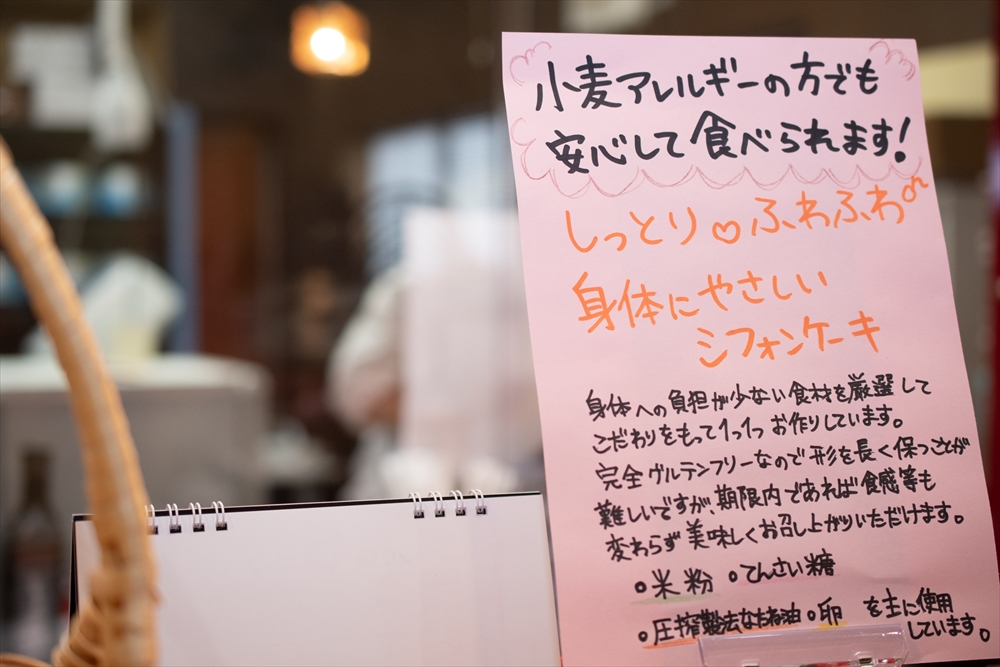 小麦アレルギーの方でも
安心して食べられます!
しっとり♡ふわふわ♪
身体にやさしい
シフォンケーキ
身体への負担が少ない食材を厳選して
こだわりをもって1つ1つお作りしています。
完全グルテンフリーなので形を長く保つことが
難しいですが、期限内であれば食感等も
変わらず美味しくお召し上がりいただけます。
○米粉 ○てんさい糖
○圧搾製法なたね油 ○卵 を主に使用
しています。